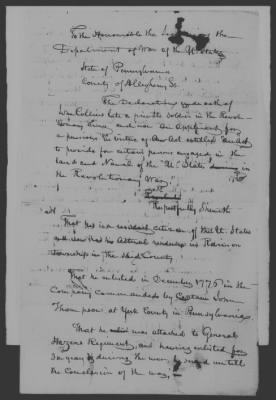 To the Honourable the Secretary of the
Department of War of the U. States
State of Pennsylvania
County of Allegheny Ss.
The Declaration upon oath of
Wm Collins late a private soldier in the Revolu-
tionary Army and now an Applicant for
a pension by virtue of an Act entitled "an Act
to provide for certain persons engaged in the
land and Naval of the "U. State during in
the Revolutionary War"
Respectfully Sheweth
That he is a resident citizen of the U. States
and that his Actual residence is Robinson
township in the said County
That he enlisted in December 1776 in the
Company commanded by Captain
Thompson at York County in Pennsylvania
That he was attached to General
Hazens Regiment, and having enlisted for
during the war, he served untill
the Conclusion of the war,